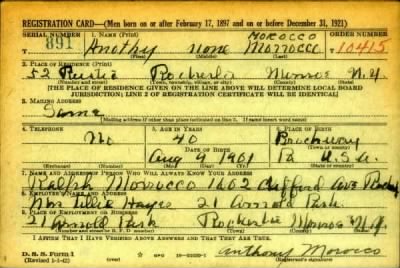 REGISTRATION CARD—(Men born on or after February 17, 1897 and on or before December 31, 1921)
SERIAL NUMBER 1. NAME (Print) MOROCCO ORDER NUMBER
891 Anothy none Morrocco 10415
(First) (Middle) (Last)
2. PLACE OF RESIDENCE (Print)
52 Rochester Monroe N.Y
[THE PLACE OF RESIDENCE GIVEN ON THE LINE ABOVE WILL DETERMINE LOCAL BOARD
JURISDICTION; LINE 2 OF REGISTRATION CERTIFICATE WILL BE IDENTICAL]
3. MAILING ADDRESS
Same
[Mailing address if other than place indicated on line 2. If same insert word same]
4. TELEPHONE 5. AGE IN YEARS 6. PLACE OF BIRTH
No 40
DATE OF BIRTH
Aug 9 1901 Pa U.S.A.
(Exchange) (Number) (Mo.) (Day) (Yr.)
7. NAME AND ADDRESS OF PERSON WHO WILL ALWAYS KNOW YOUR ADDRESS
Ralph Morrocco 1602 Clifford Ave
8. EMPLOYER'S NAME AND ADDRESS
Mrs 21 Arnold Park
9. PLACE OF EMPLOYMENT OR BUSINESS
21 Arnold Park Rochester Monroe N.Y.
I AFFIRM THAT I HAVE VERIFIED ABOVE ANSWERS AND THAT THEY ARE TRUE.
D. S. S. Form 1
(Revised 1-1-42)
Anthony Morocco